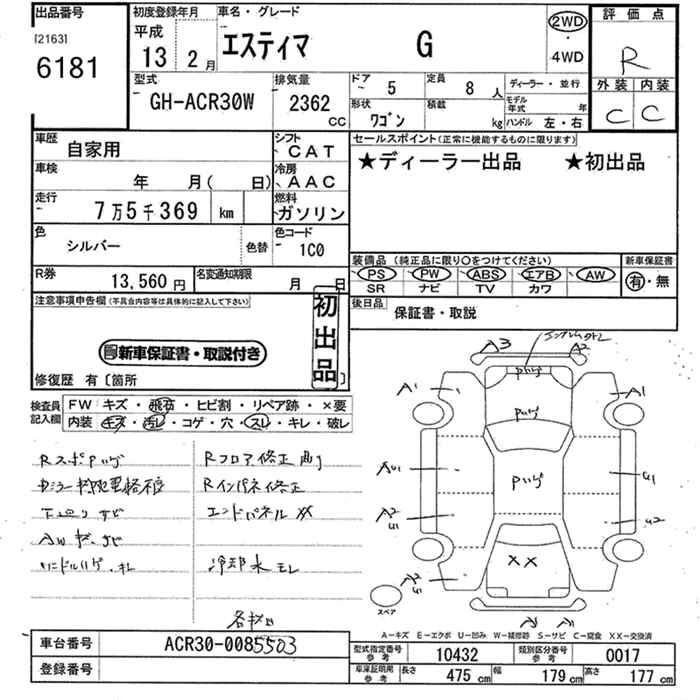 出品番号
[2163]
6181
初度登録年月
平成
13年 2月
車名・グレード
エスティマ G
2WD
・
4WD
評価点
R
外装 内装
C C
型式
GH-ACR30W
排気量
2362 CC
ドア 5
定員 8人
ディーラー・並行
形状 ワゴン
積載 kg
モデル年式 年
ハンドル 左・右
車歴 自家用
シフト CAT
車検 年 月( 日)
冷房 AAC
走行 7万5千369 km
燃料 ガソリン
色 シルバー 色替
色コード 1C0
R券 13,560円
名変通知期限 月 日
セールスポイント(正常に機能するものに限ります)
★ディーラー出品 ★初出品
装備品(純正品に限り○をつけてください)
新車保証書
PS PW ABS エアB AW
SR ナビ TV カワ
有・無
後日品 保証書・取説
注意事項申告欄(不具合内容等は具体的に記入して下さい)
初出品
新車保証書・取説付き
修復歴 有〔箇所 〕
検査員記入欄
FW キズ・飛石・ヒビ割・リペア跡・×要
内装 キズ・汚レ・コゲ・穴・スレ・キレ・破レ
Rフロア修正
Rインパネ修正
エンドパネルXX
下廻りサビ
冷却水モレ
A3 A2
A1 A1
AU1 U1
A2
U1 U2
XX
スペア
A-キズ E-エクボ U-凹み W-補修跡 S-サビ C-腐食 XX-交換済
車台番号 ACR30-0085503
登録番号
型式指定番号 参考 10432
類別区分番号 参考 0017
車庫証明用 参考 長さ 475cm 幅 179cm 高さ 177cm